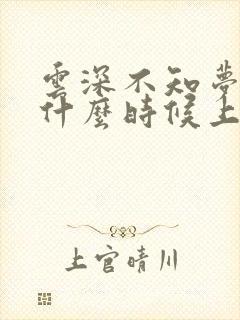 雲深不知夢
什麼時候上
上官晴川